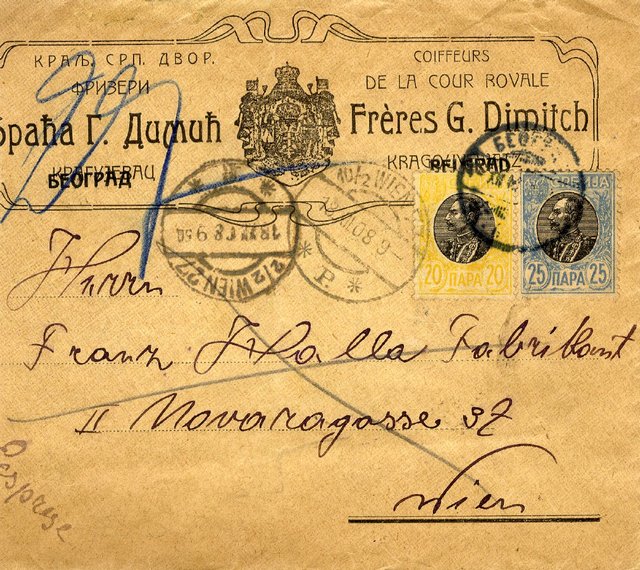 КРАЉ. СРП. ДВОР.
ФРИЗЕРИ
Браћа Г. Димић
КРАГУЈЕВАЦ
БЕОГРАД
COIFFEURS
DE LA COUR ROYALE
Frères G. Dimitch
BELGRAD
WIEN
2/2 WIEN 2
20 ПАРА 20
25 ПАРА 25
Herrn
Franz Halla Fabrikant
II Novaragasse 37
Wien